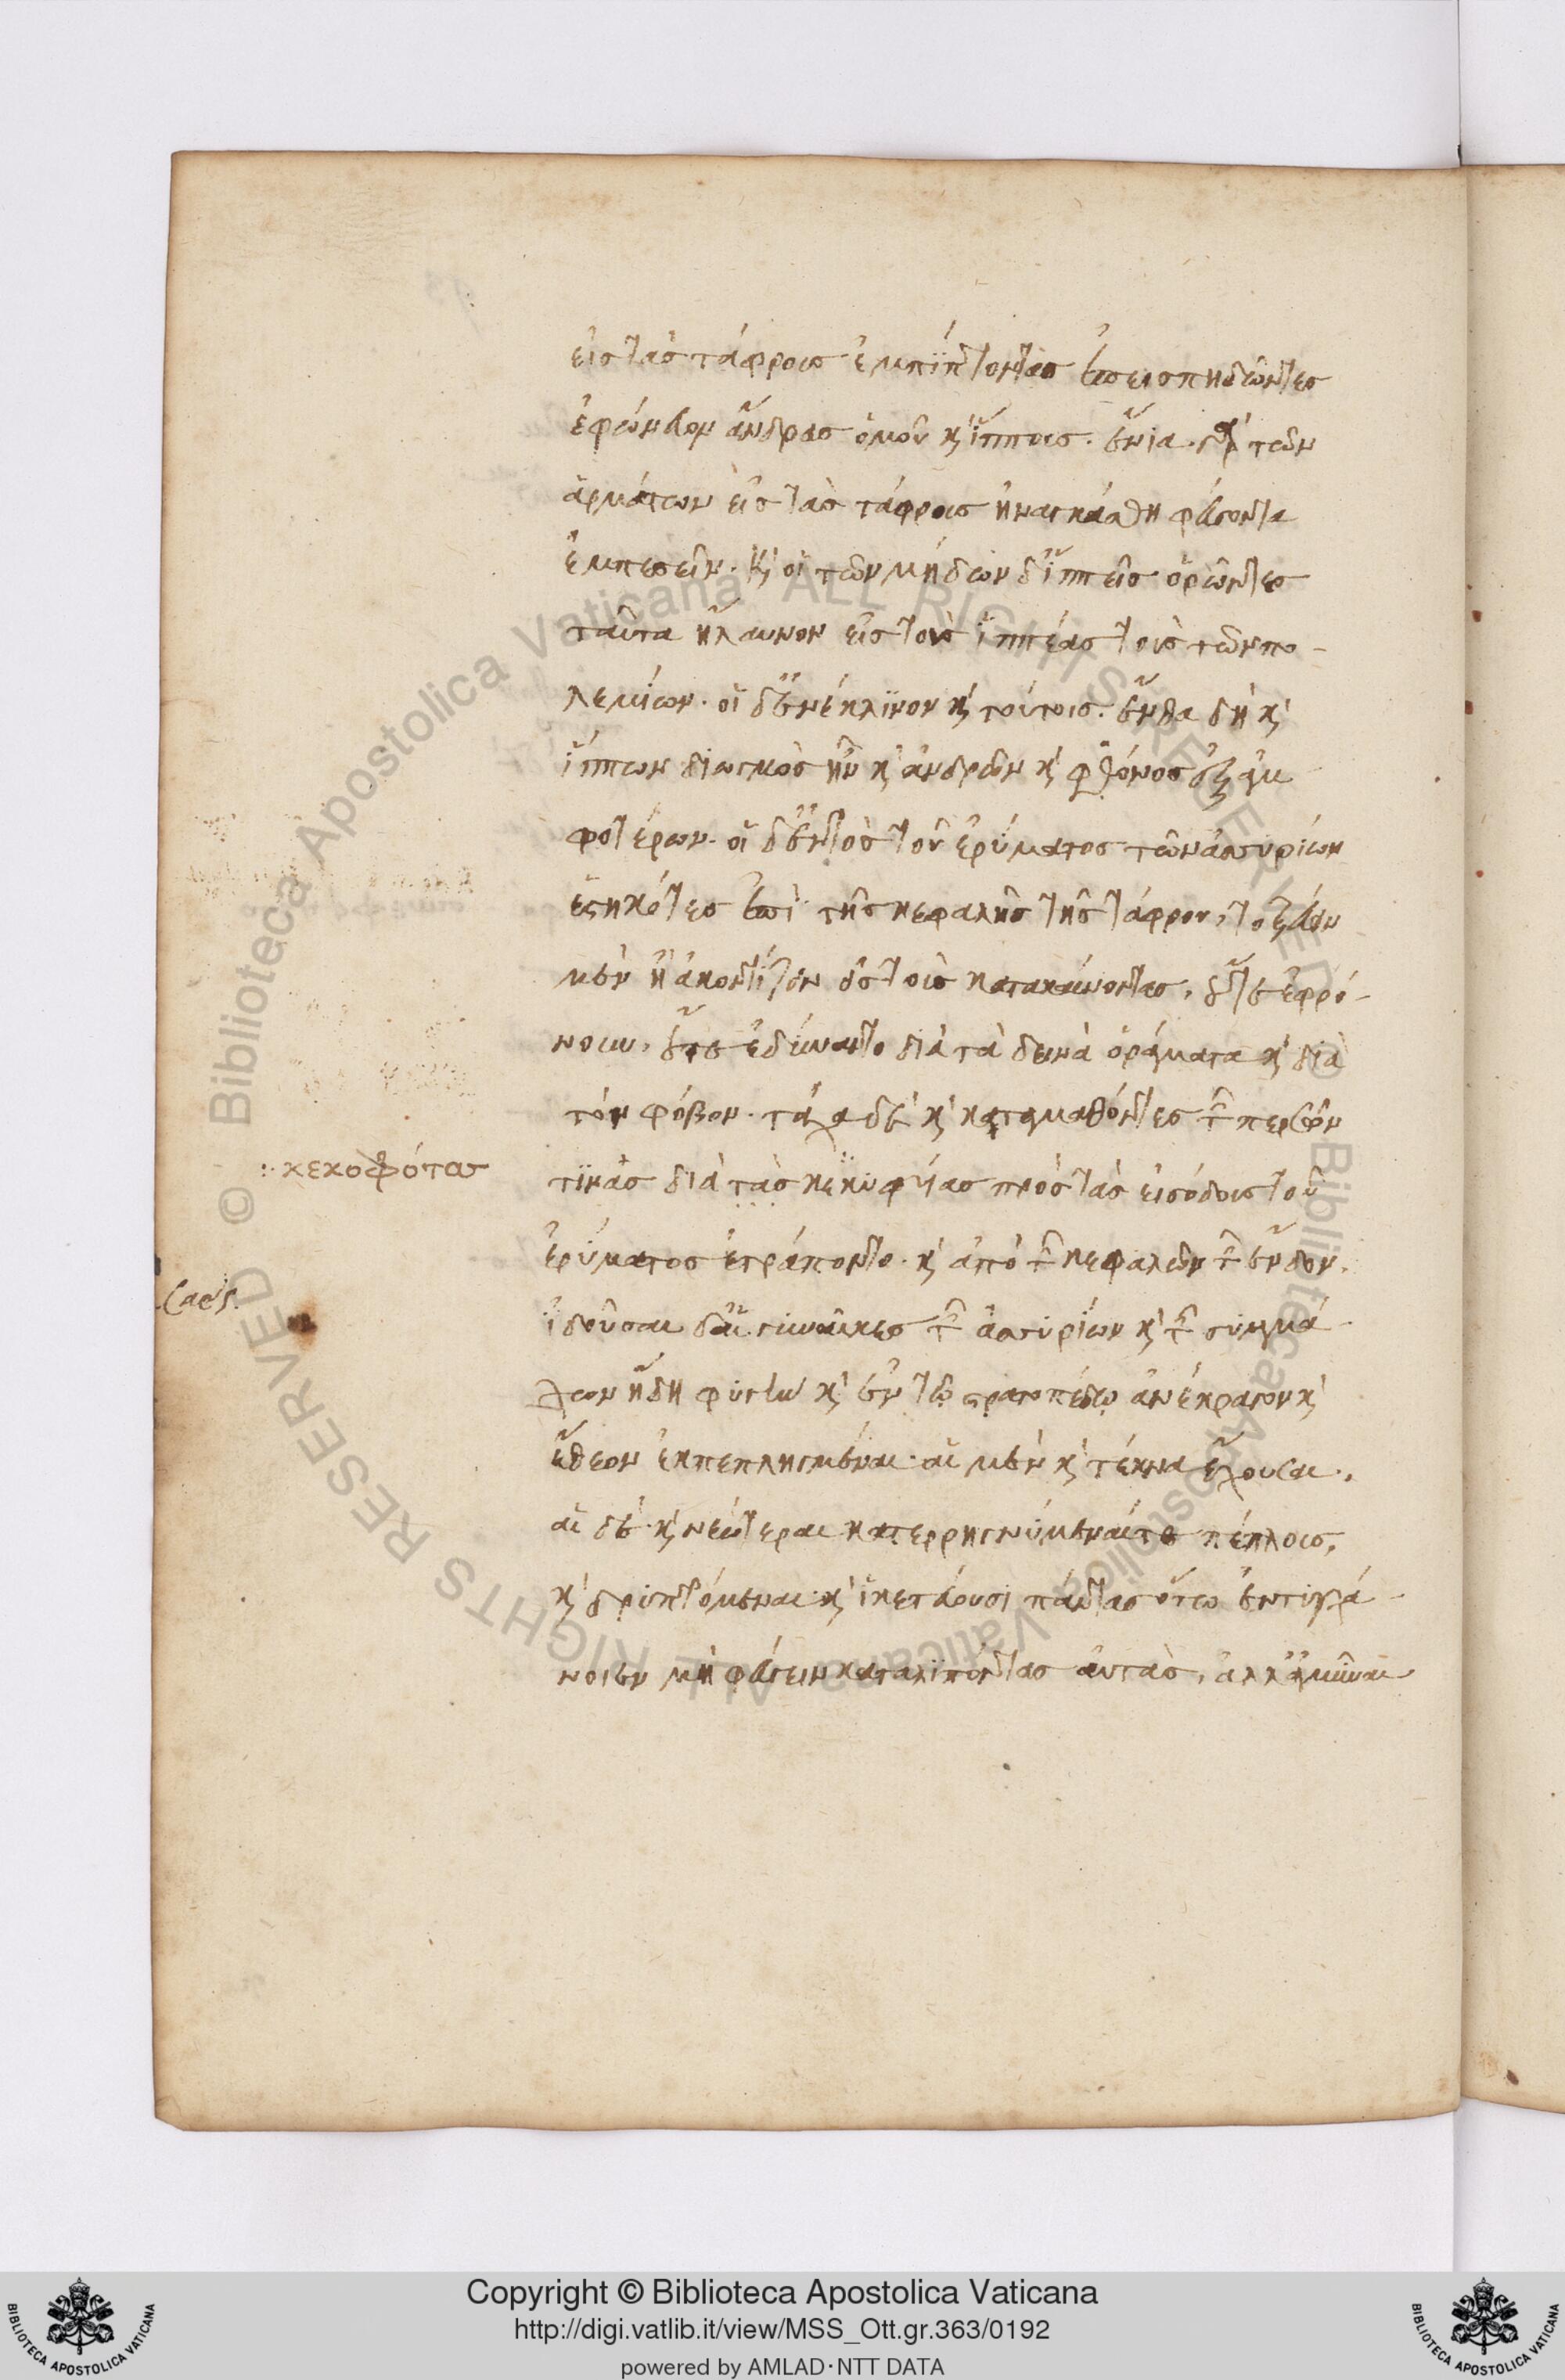 εἰς τὰς τάφρους ἐμπίπτοντας ἐπεισπηδῶντες
ἐφόνευον ἄνδρας ὁμοῦ κ' ἵππους. ἔνια δὲ τῶν
ἁρμάτων εἰς τὰς τάφρους ἠναγκάσθη φεύγοντα
ἐμπεσεῖν. κ' οἱ τῶν μήδων δ' ἱππεῖς ὁρῶντες
ταῦτα ἤλαυνον εἰς τοὺς ἱππέας τοὺς τῶν πο-
λεμίων. οἱ δ' ἐνέκλινον κ' τούτοις. ἔνθα δὴ κ'
ἵππων διωγμὸς ἦν κ' ἀνδρῶν κ' φθόνος ἐξ ἀμ-
φοτέρων. οἱ δ' ἐντὸς τοῦ ἐρύματος τῶν ἀσσυρίων
ἑστηκότες ἐπὶ τῆς κεφαλῆς τῆς τάφρου, τοξεύειν
μὲν ἢ ἀκοντίζειν εἰς τοὺς κατακαίνοντας, οὔτε ἐφρό-
νουν, οὔτε ἐδύναντο διὰ τὰ δεινὰ ὁράματα κ' διὰ
τὸν φόβον. τάχα δὲ κ' καταμαθόντες τῶν περσῶν
τινὰς διὰ τὰς πρὸς τὰς εἰσόδους τοῦ
ἐρύματος ἐτράποντο. κ' ἀπὸ τῶν κεφαλῶν τῶν ἔνδον.
ἰδοῦσαι δ' αἱ γυναῖκες τῶν ἀσσυρίων κ' τῶν συμμά-
χων ἤδη φυγὴν κ' ἐν τῷ στρατοπέδῳ ἀνέκραγον κ'
ἔθεον ἐκπεπληγμέναι. αἱ μὲν κ' τέκνα ἔχουσαι.
αἱ δὲ κ' νεώτεραι καταρρηγνύμεναί τε πέπλους,
κ' δρυπτόμεναι κ' ἱκετεύουσι πάντας ὅτῳ ἐντυγχά-
νοιεν μὴ φεύγειν καταλιπόντας αὐτὰς, ἀλλ' ἀμῦναι
:· κεκοφότας
Caes.
Copyright © Biblioteca Apostolica Vaticana
http://digi.vatlib.it/view/MSS_Ott.gr.363/0192
powered by AMLAD·NTT DATA
BIBLIOTECA APOSTOLICA VATICANA
BIBLIOTECA APOSTOLICA VATICANA
© Biblioteca Apostolica Vaticana ALL RIGHTS RESERVED
© Biblioteca Apostolica Vaticana ALL RIGHTS RESERVED